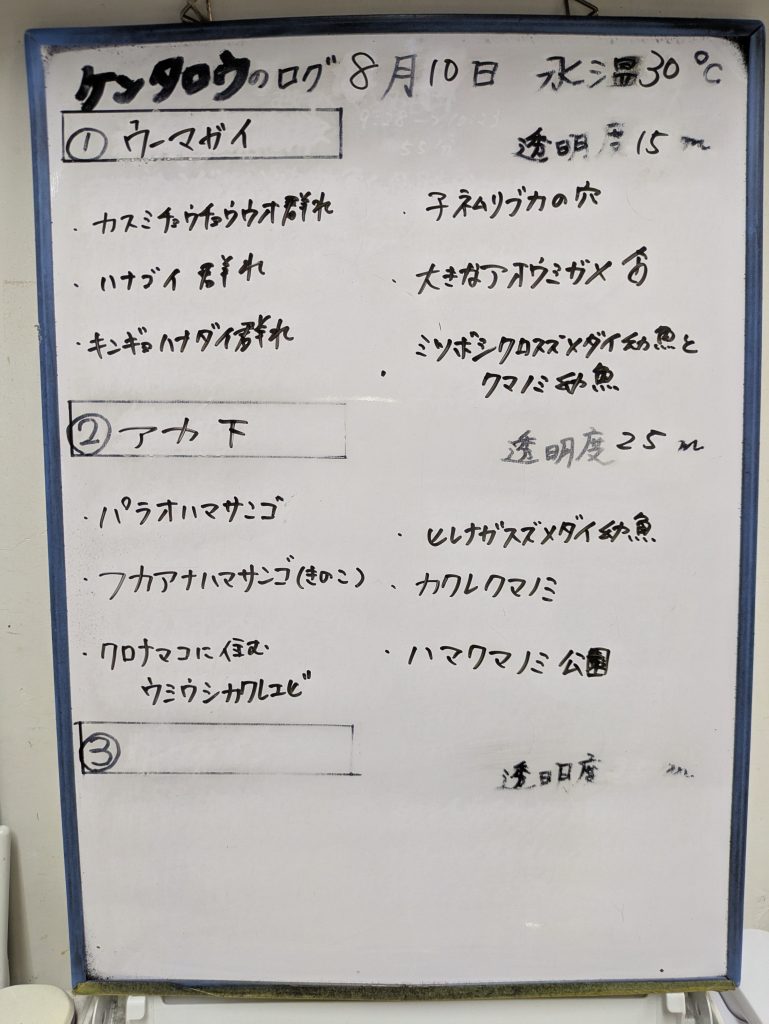 ケンタロウのログ 8月10日 水温30℃
① ウーマガイ 透明度 15 m
・カスミチョウチョウウオ群れ
・ハナゴイ 群れ
・キンギョハナダイ群れ
・子ネムリブカの穴
・大きなアオウミガメ
・ミツボシクロスズメダイ幼魚と
クマノミ幼魚
② アカ下 透明度 25 m
・パラオハマサンゴ
・フカアナハマサンゴ(きのこ)
・クロナマコに住む
ウミウシカクレエビ
・ヒレナガスズメダイ幼魚
・カクレクマノミ
・ハマクマノミ公園
③ 透明度 m